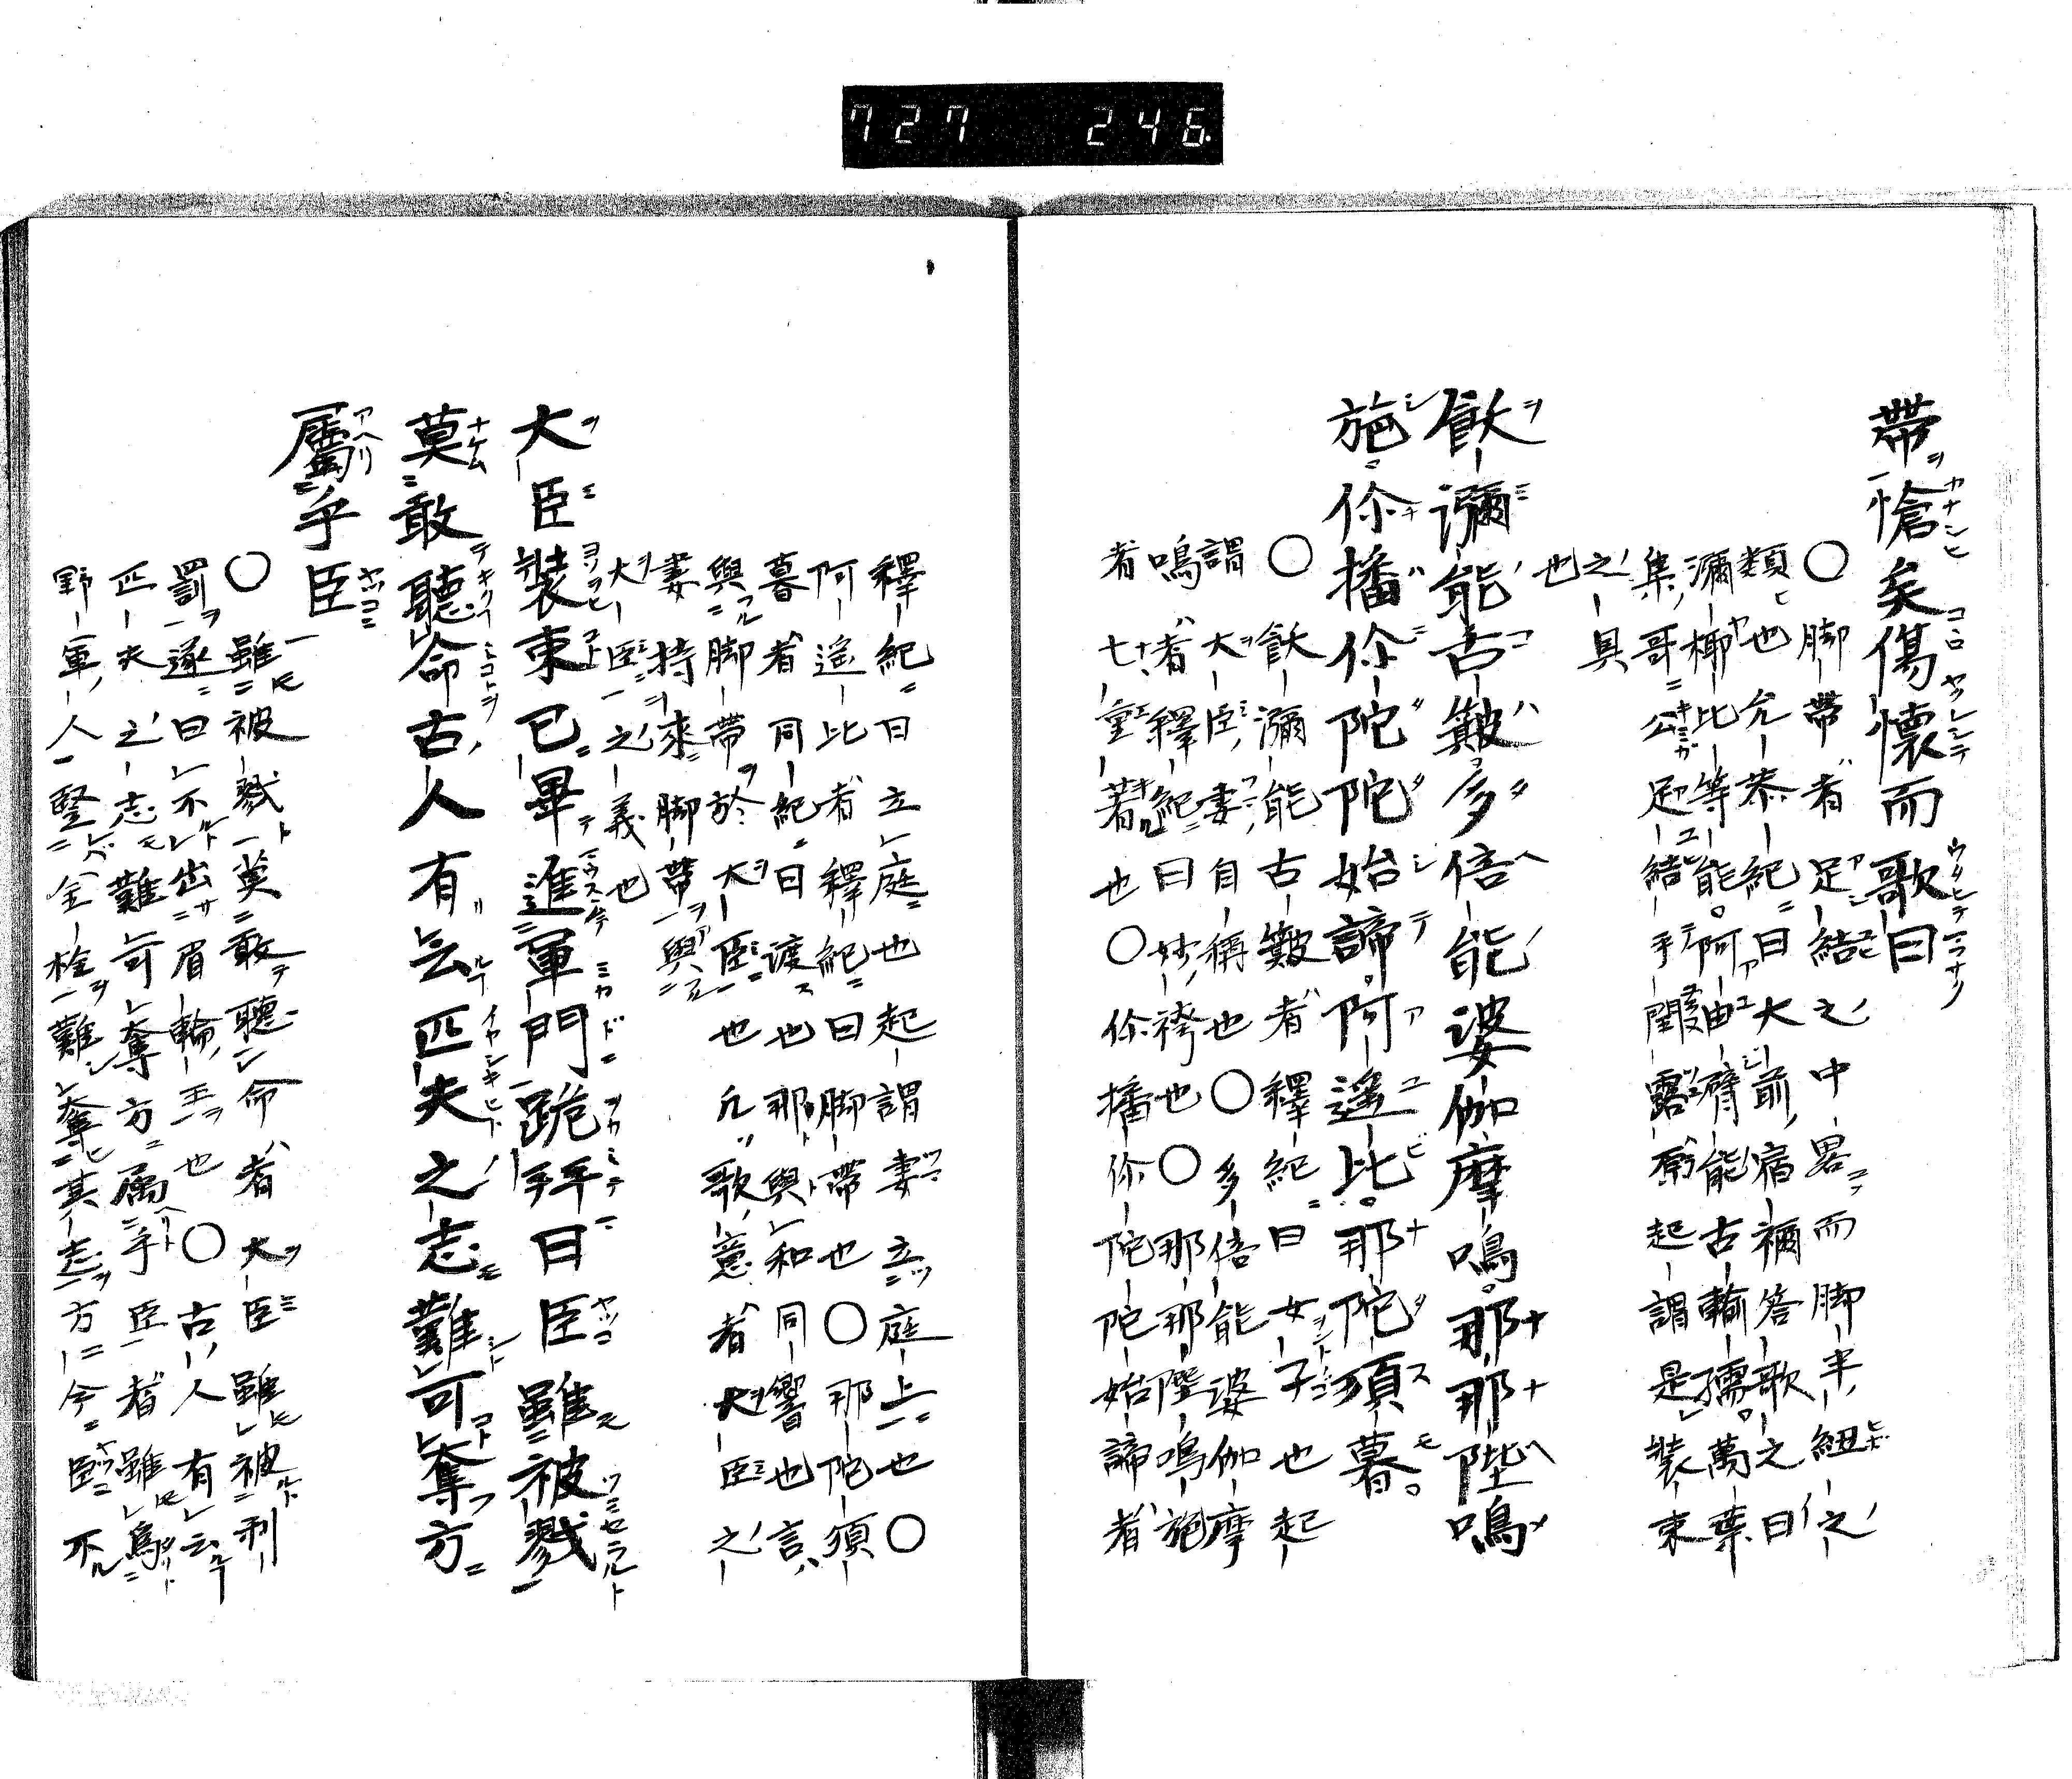 727 246
帶愴矣傷懷而歌曰
○脚帶者足結之中畧而脚半紐之
類也允恭紀曰大前宿禰答歌之曰
瀰椰比等能阿由臂能古輸孺萬葉
集哥公足結手閏露奈起謂是裝束
之具
也
飫瀰能古簸多倍能婆伽摩鳴那那陛鳴
施伱播伱陀陀始諦阿遥比那陀須暮
○飫瀰能古簸者釋紀曰女子也起
謂大臣妻自稱也○多倍能婆伽摩
鳴者釋紀曰妙袴也○那那陛鳴施
者七重著也○伱播伱陀陀始諦者
釋紀曰立庭也起謂妻立庭上也○
阿遥比者釋紀曰脚帶也○那陀須
暮者同紀曰渡也那與和同響也言
與脚帶於大臣也凡歌意者大臣之
妻持來脚帶與
大臣之義也
大臣裝束已畢進軍門跪拜曰臣雖被戮
莫敢聽命古人有云匹夫之志難可奪方
屬乎臣
○雖被戮莫敢聽命者大臣雖被刑
罰遂曰不出眉輪王也○古人有云
匹夫之志難可奪方屬乎臣者雖爲
野軍人竪全栓難奪其志方今臣不